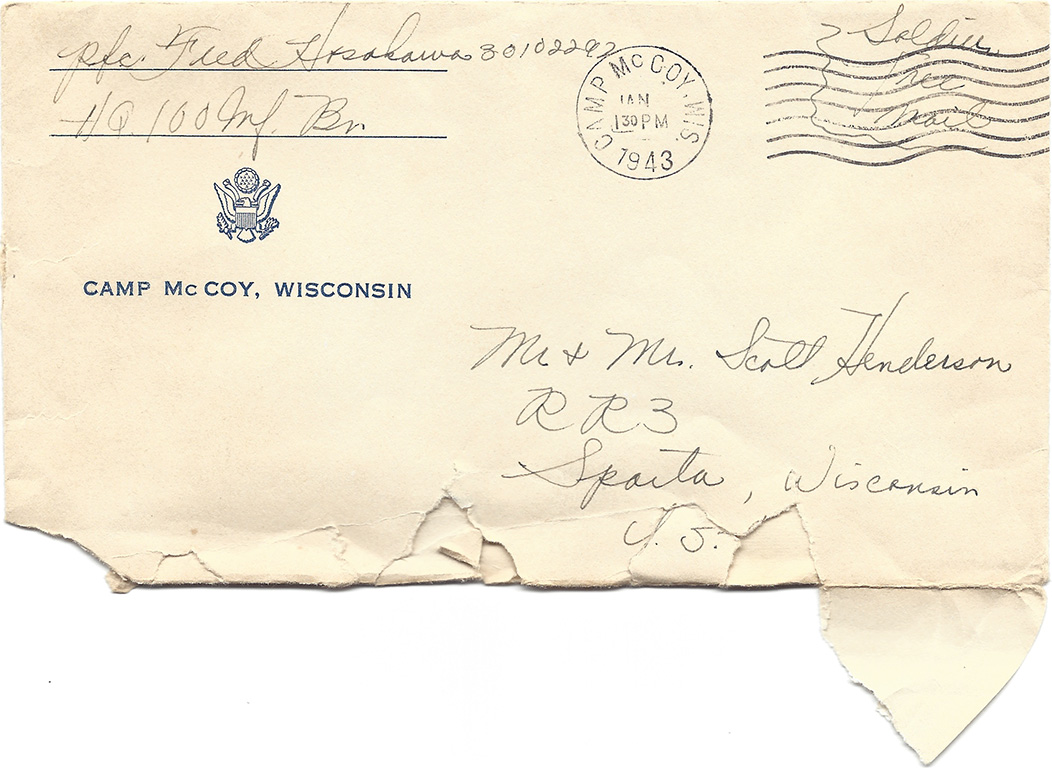 Pfc. Fred Hosokawa 30102297
HQ. 100 Inf. Bn.
CAMP McCOY, WIS.
JAN
1 30 PM
1943
Soldier
Free
Mail
CAMP McCOY, WISCONSIN
Mr & Mrs. Scott Henderson
R R 3
Sparta, Wisconsin
U. S.